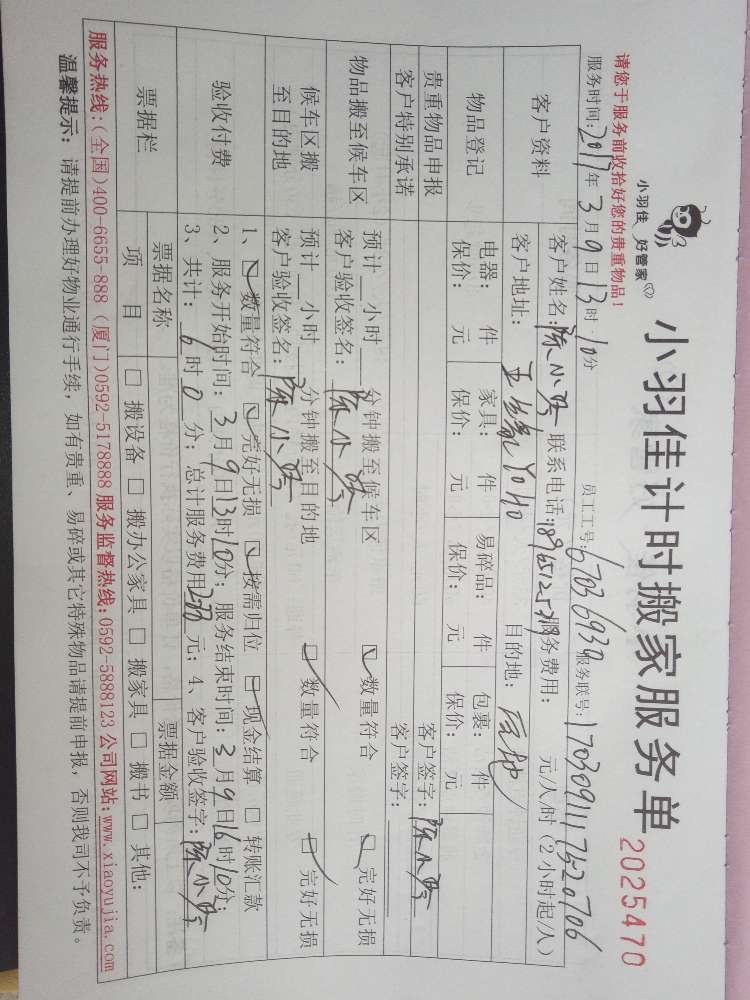 小羽佳 好管家
小羽佳计时搬家服务单
2025470
请您于服务前收拾好您的贵重物品！
员工工号：6703 6939 服务联号：1703091117520706
服务时间：2017年3月9日13时10分
客户资料 客户姓名：陈小 联系电话： 服务费用： 元/人/时（2小时起/人）
客户地址： YOHO 目的地：
物品登记 电器： 件 家具： 件 易碎品： 件 包裹： 件
保价： 元 保价： 元 保价： 元 保价： 元
贵重物品申报 客户签字：陈小
客户特别承诺 客户签字：
物品搬至候车区 预计 小时 分钟搬至候车区 数量符合 完好无损
客户验收签名：陈小
候车区搬至目的地 预计 小时 分钟搬至目的地 数量符合 完好无损
客户验收签名：陈小
验收付费 1、 数量符合 完好无损 按需归位 现金结算 转账汇款
2、服务开始时间：3月9日13时10分；服务结束时间：3月9日16时10分；
3、共计：6时0分；总计服务费用 元；4、客户验收签字：陈小
票据栏 票据名称 票据金额
项 目 搬设备 搬办公家具 搬家具 搬书 其他：
服务热线：（全国）400-6655-888（厦门）0592-5178888 服务监督热线：0592-5888123 公司网站：www.xiaoyujia.com
温馨提示：请提前办理好物业通行手续，如有贵重、易碎或其它特殊物品请提前申报，否则我司不予负责。